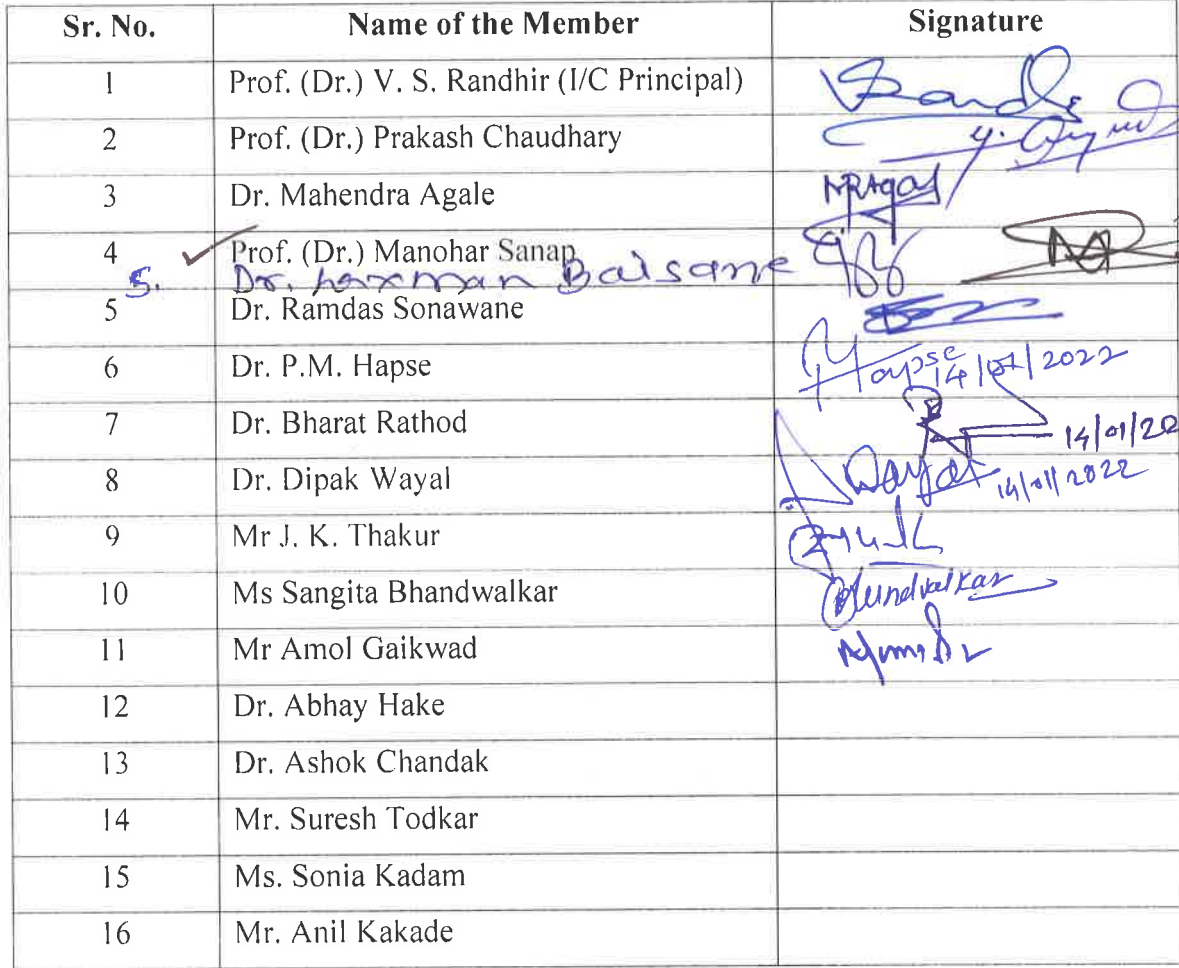 Sr. No. Name of the Member Signature
1 Prof. (Dr.) V. S. Randhir (I/C Principal)
2 Prof. (Dr.) Prakash Chaudhary
3 Dr. Mahendra Agale
4 Prof. (Dr.) Manohar Sanap
5. Dr. Laxman Balsane
5 Dr. Ramdas Sonawane
6 Dr. P.M. Hapse Hapse 14/01/2022
7 Dr. Bharat Rathod 14/01/20
8 Dr. Dipak Wayal Wayal 14/01/2022
9 Mr J. K. Thakur
10 Ms Sangita Bhandwalkar
11 Mr Amol Gaikwad
12 Dr. Abhay Hake
13 Dr. Ashok Chandak
14 Mr. Suresh Todkar
15 Ms. Sonia Kadam
16 Mr. Anil Kakade